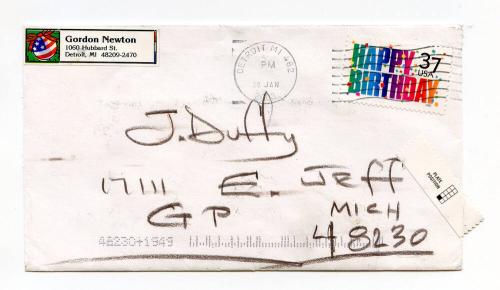 Gordon Newton
1060 Hubbard St.
Detroit, MI 48209-2470
DETROIT MI 482
PM
JAN
HAPPY
BIRTHDAY
37
USA
J. Duffy
17111 E. Jeff
GP MICH
48230
48230+1949
PLATE
POSITION